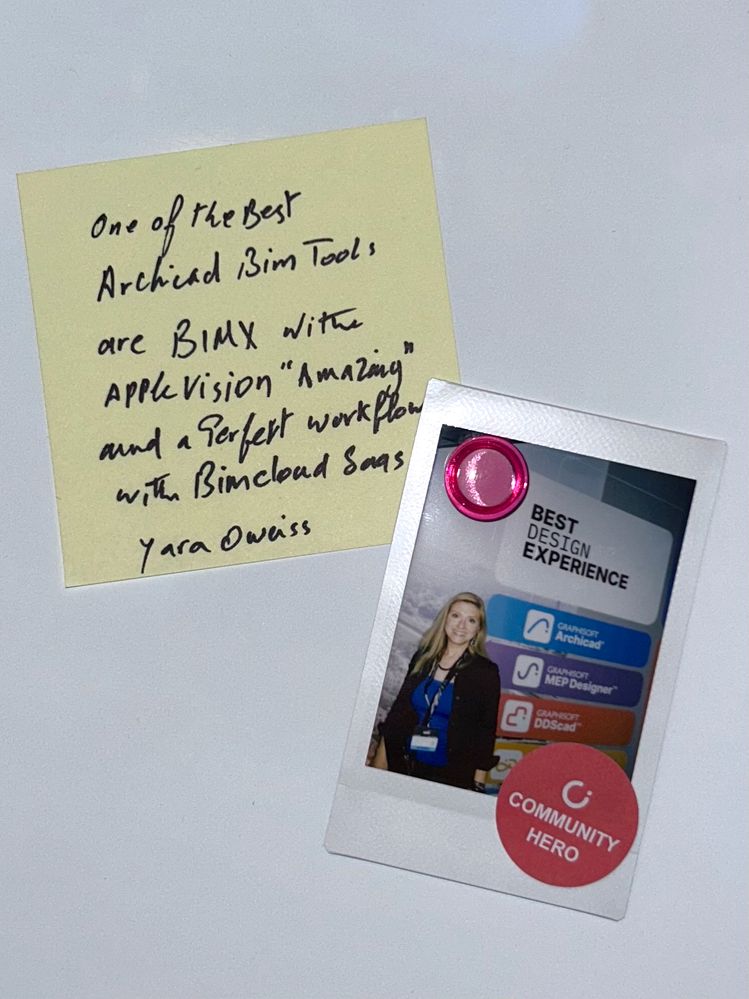 One of the Best
Archicad Bim Tools
are BIMX with
Apple Vision "Amazing"
and a Perfect workflow
with Bimcloud Saas
Yara Oweiss
BEST
DESIGN
EXPERIENCE
GRAPHISOFT
Archicad
GRAPHISOFT
MEP Designer™
GRAPHISOFT
DDScad™
COMMUNITY
HERO